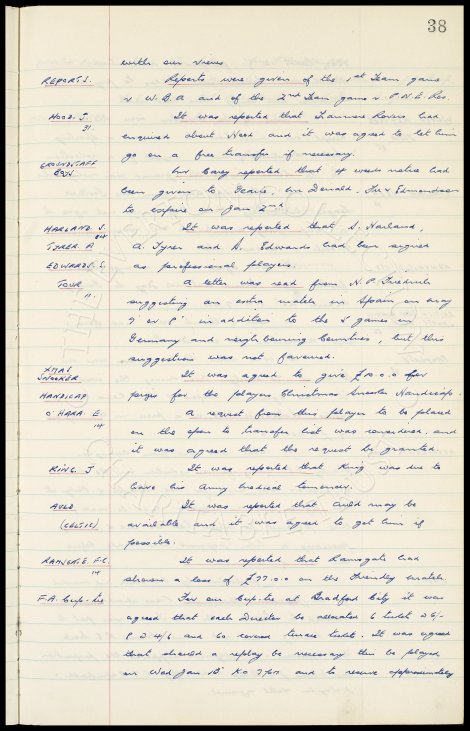 38
with our views
REPORTS. Reports were given of the 1st Team game
v W.B.A and of the 2nd Team game v P.N.E. Res.
HOOD. J. It was reported that Tranmere Rovers had
31 enquired about Hood and it was agreed to let him
go on a free transfer if necessary.
GROUNDSTAFF BOYS Mr Carey reported that 4 weeks notice had
been given to Donald, & Edmondson
to expire on Jan 2nd
HARLAND. S. It was reported that S. Harland,
TYRER. A A. Tyrer and S. Edwards had been signed
EDWARDS. S. as professional players.
TOUR A letter was read from N.P.
11. suggesting an extra match in Spain on May
7 or 8 in addition to the 5 games in
Germany and neighbouring Countries, but this
suggestion was not favoured.
XMAS SNOOKER It was agreed to give £10.0.0 for
HANDICAP prizes for the players Christmas Snooker Handicap.
O'HARA. E. A request from this player to be placed
14 on the open to transfer list was considered and
it was agreed that the request be granted.
RING. J It was reported that Ring was due to
have his Army medical tomorrow.
AULD It was reported that Auld may be
(CELTIC) available and it was agreed to get him if
possible.
RAMSGATE. F.C. It was reported that Ramsgate had
14 shown a loss of £77.0.0 on the Friendly match.
F.A. Cup-tie For our Cup-tie at Bradford City it was
agreed that each Director be allocated 6 tickets 2 6/-
4/6 and 60 covered terrace tickets. It was agreed
that should a replay be necessary this be played
on Wed Jan K.O and to reserve approximately